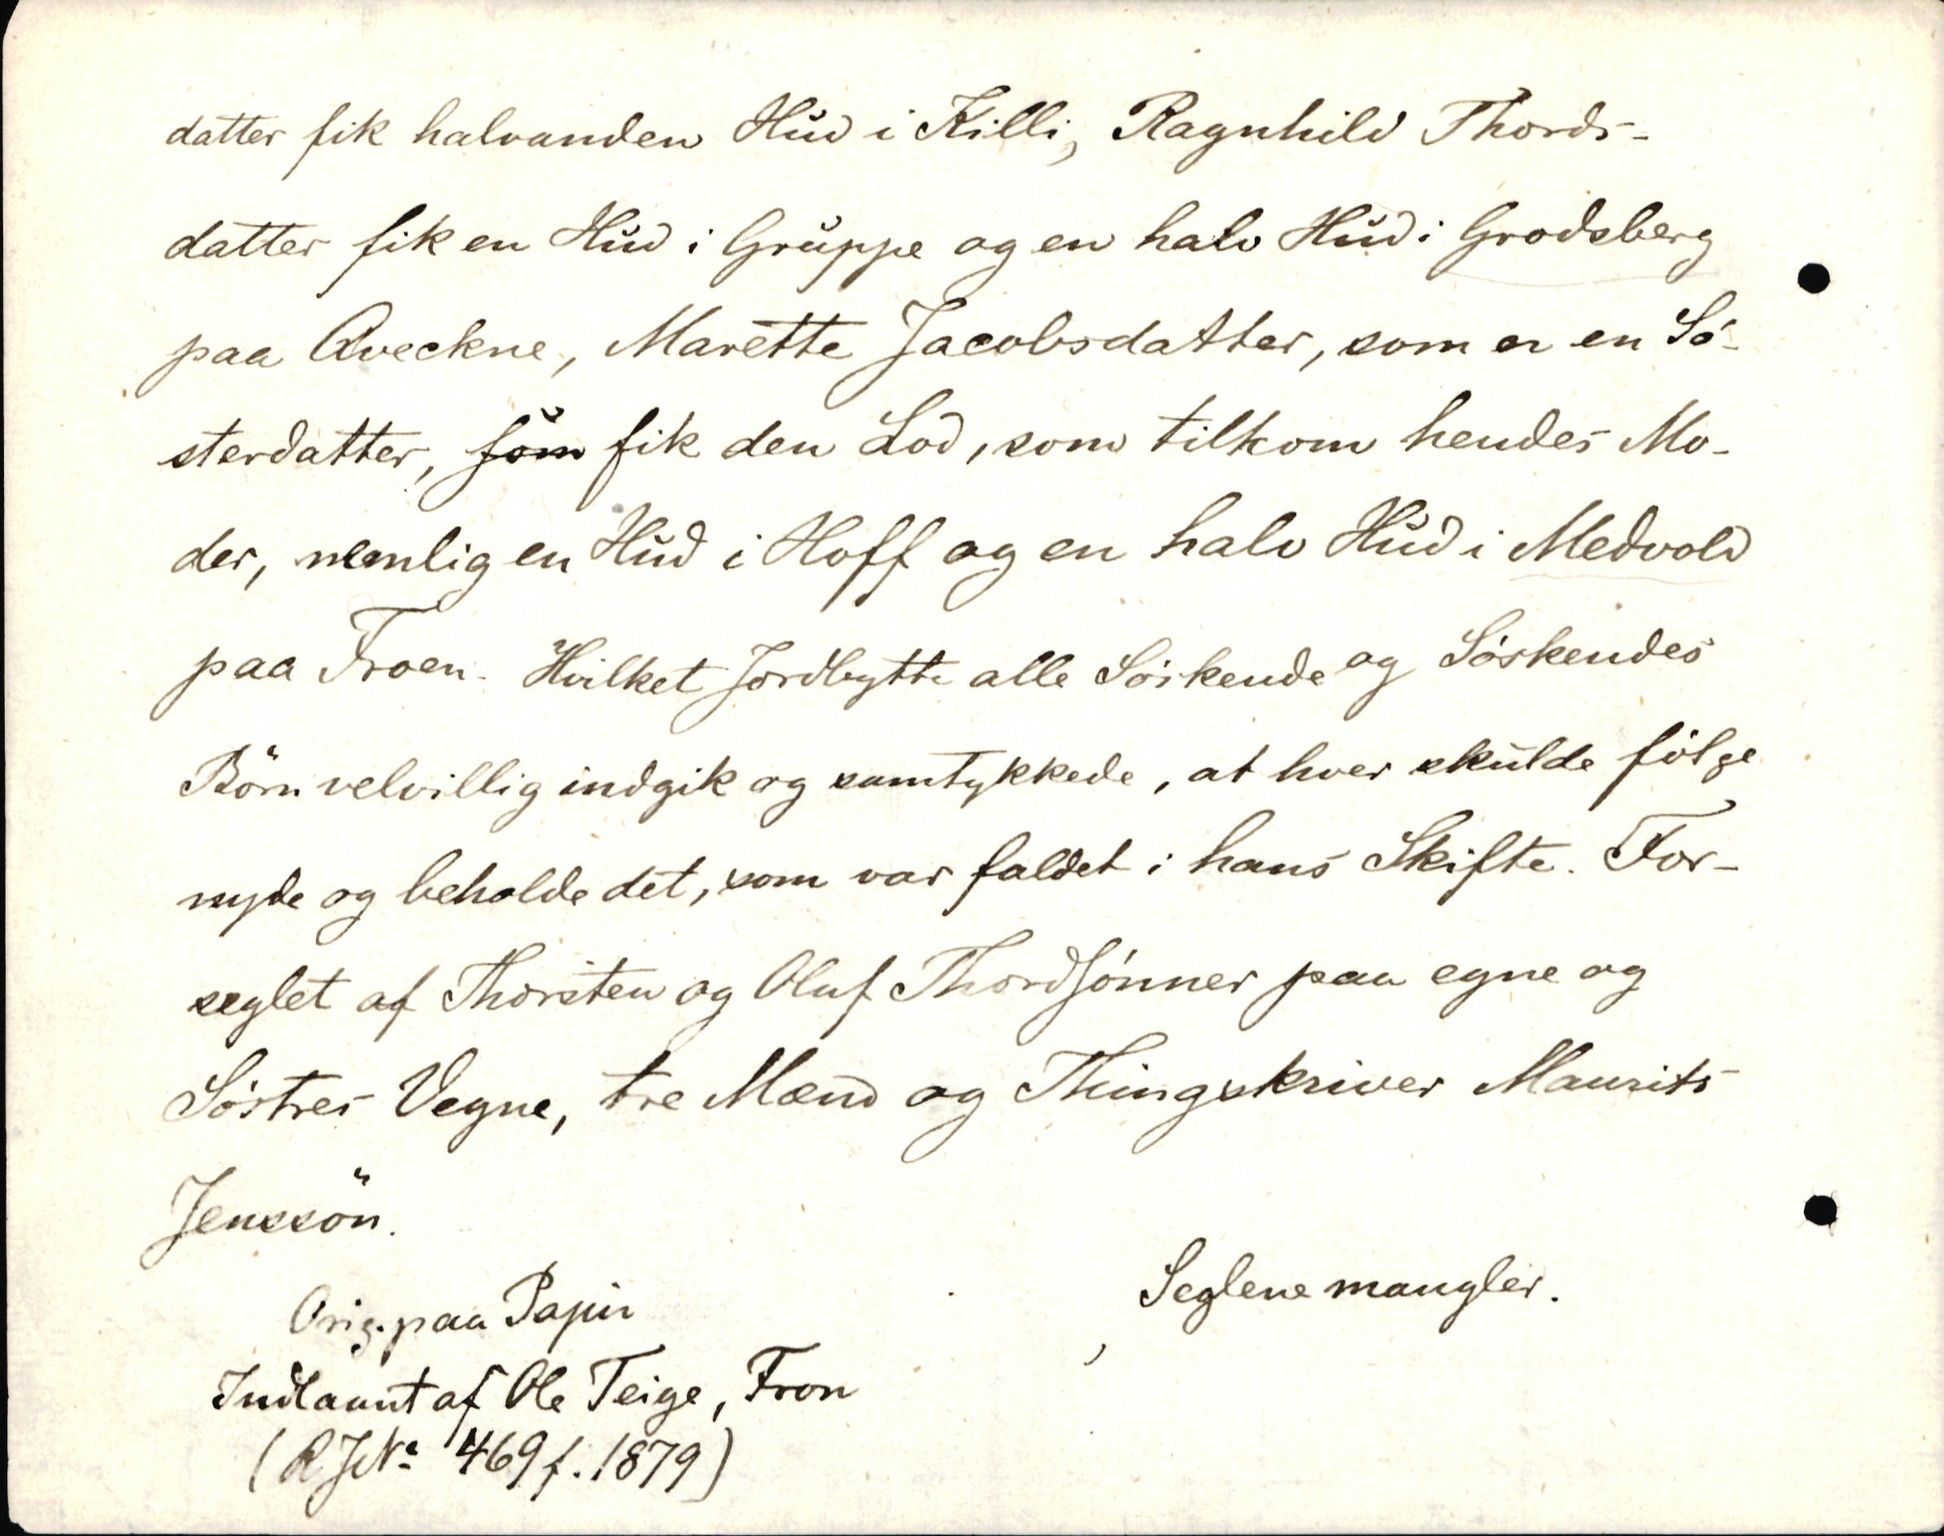 datter fik halvanden Hud i Killi, Ragnhild Thords-
datter fik en Hud i Gruppe og en halv Hud i Grodsberg
paa Qveckne, Marette Jacobsdatter, som er en Sö-
sterdatter, som fik den Lod, som tilkom hendes Mo-
der, nemlig en Hud i Hoff og en halv Hud i Medvold
paa Froen. Hvilket Jordbytte alle Söskende og Söskendes
Börn velvillig indgik og samtykkede, at hver skulde fölge
nyde og beholde det, som var faldet i hans Skifte. For-
seglet af Thorsten og Oluf Thordsönner paa egne og
Söstres Vegne, tre Mænd og Thingskriver Maurits
Jenssön.
Orig. paa Papir
Seglene mangler.
Indlaant af Ole Teige, Fron
(R JNo 469 f. 1879)